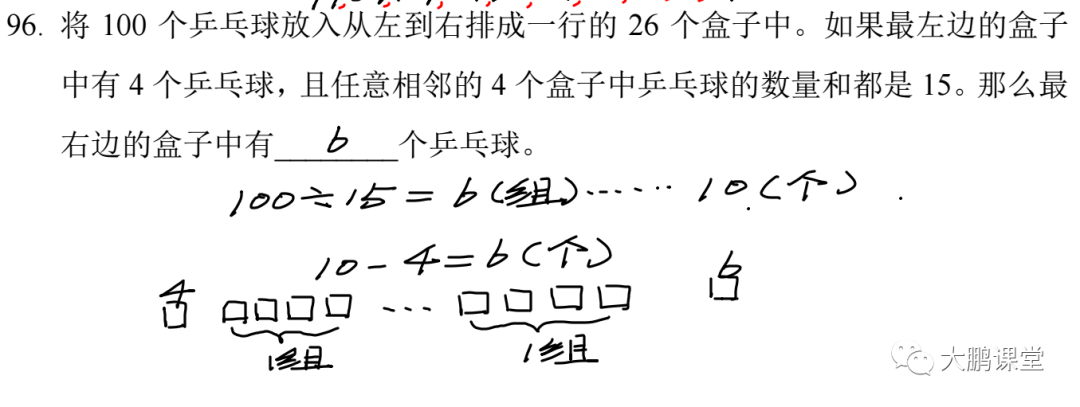 96. 将 100 个乒乓球放入从左到右排成一行的 26 个盒子中。如果最左边的盒子
中有 4 个乒乓球，且任意相邻的 4 个盒子中乒乓球的数量和都是 15。那么最
右边的盒子中有 6 个乒乓球。
100÷15=6(组)……10(个)
10-4=6(个)
4 … 6
1组 1组
大鹏课堂